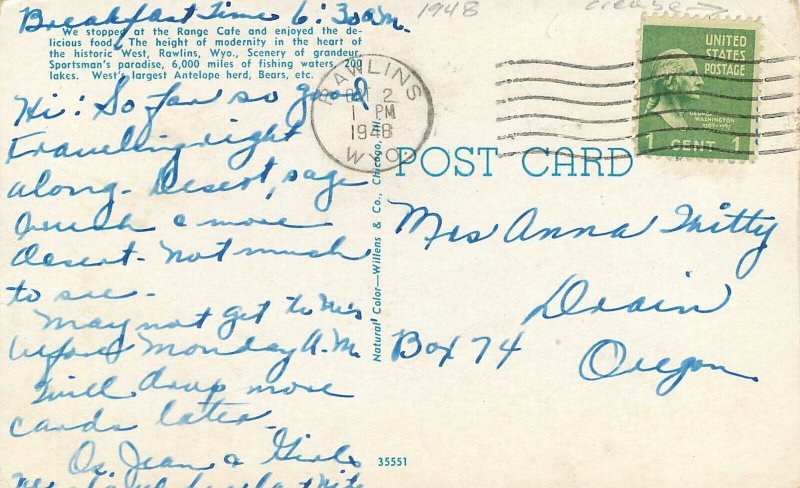 Breakfast Time 6:30 a.m.
1948
We stopped at the Range Cafe and enjoyed the de-
licious food. The height of modernity in the heart of
the historic West, Rawlins, Wyo., Scenery of grandeur.
Sportsman's paradise, 6,000 miles of fishing waters, 200
lakes. West's largest Antelope herd, Bears, etc.
Hi: So far so good
travelling right
along. Desert, sage
brush & more
desert - Not much
to see.
May not get to
before Monday A.M.
Will drop more
cards later.
Jean & Girls
RAWLINS
2
1 PM
1948
WYO.
Natural Color—Willens & Co., Chicago, Ill.
UNITED
STATES
POSTAGE
GEORGE
WASHINGTON
1789-1797
1 CENT 1
POST CARD
Mrs Anna Mitty
Drain
Box 74
Oregon
35551